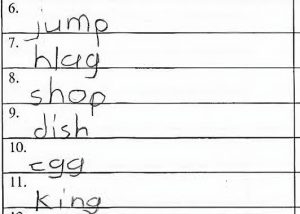 6. jump
7. hlag
8. shop
9. dish
10. egg
11. king